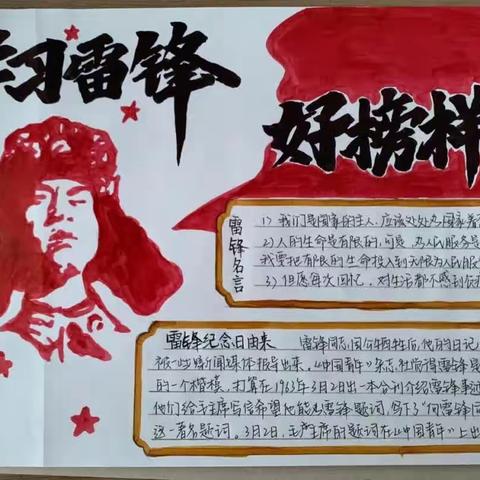 学习雷锋
好榜样
雷锋名言
1) 我们是国家的主人,应该处处为国家着
2) 人的生命是有限的,可是,为人民服务是
我要把有限的生命投入到无限为人民服
3) 但愿每次回忆,对生活都不感到
雷锋纪念日由来 雷锋同志因公牺牲后,他的日记
被一些新闻媒体报导出来,《中国青年》杂志社觉得雷锋是
的一个楷模,打算在1963年3月2日出一本合刊介绍雷锋事迹
他们给毛主席写信希望他能为雷锋题词,写下了"向雷锋同
这一著名题词。3月2日,毛主席的题词在《中国青年》上